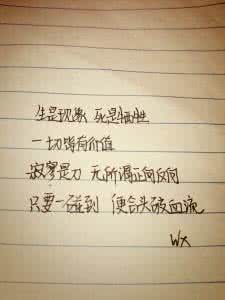 生是现象 死是牺牲
一切皆有价值
寂寞是刀 无所谓正向反向
只要一碰到 便会头破血流
WX